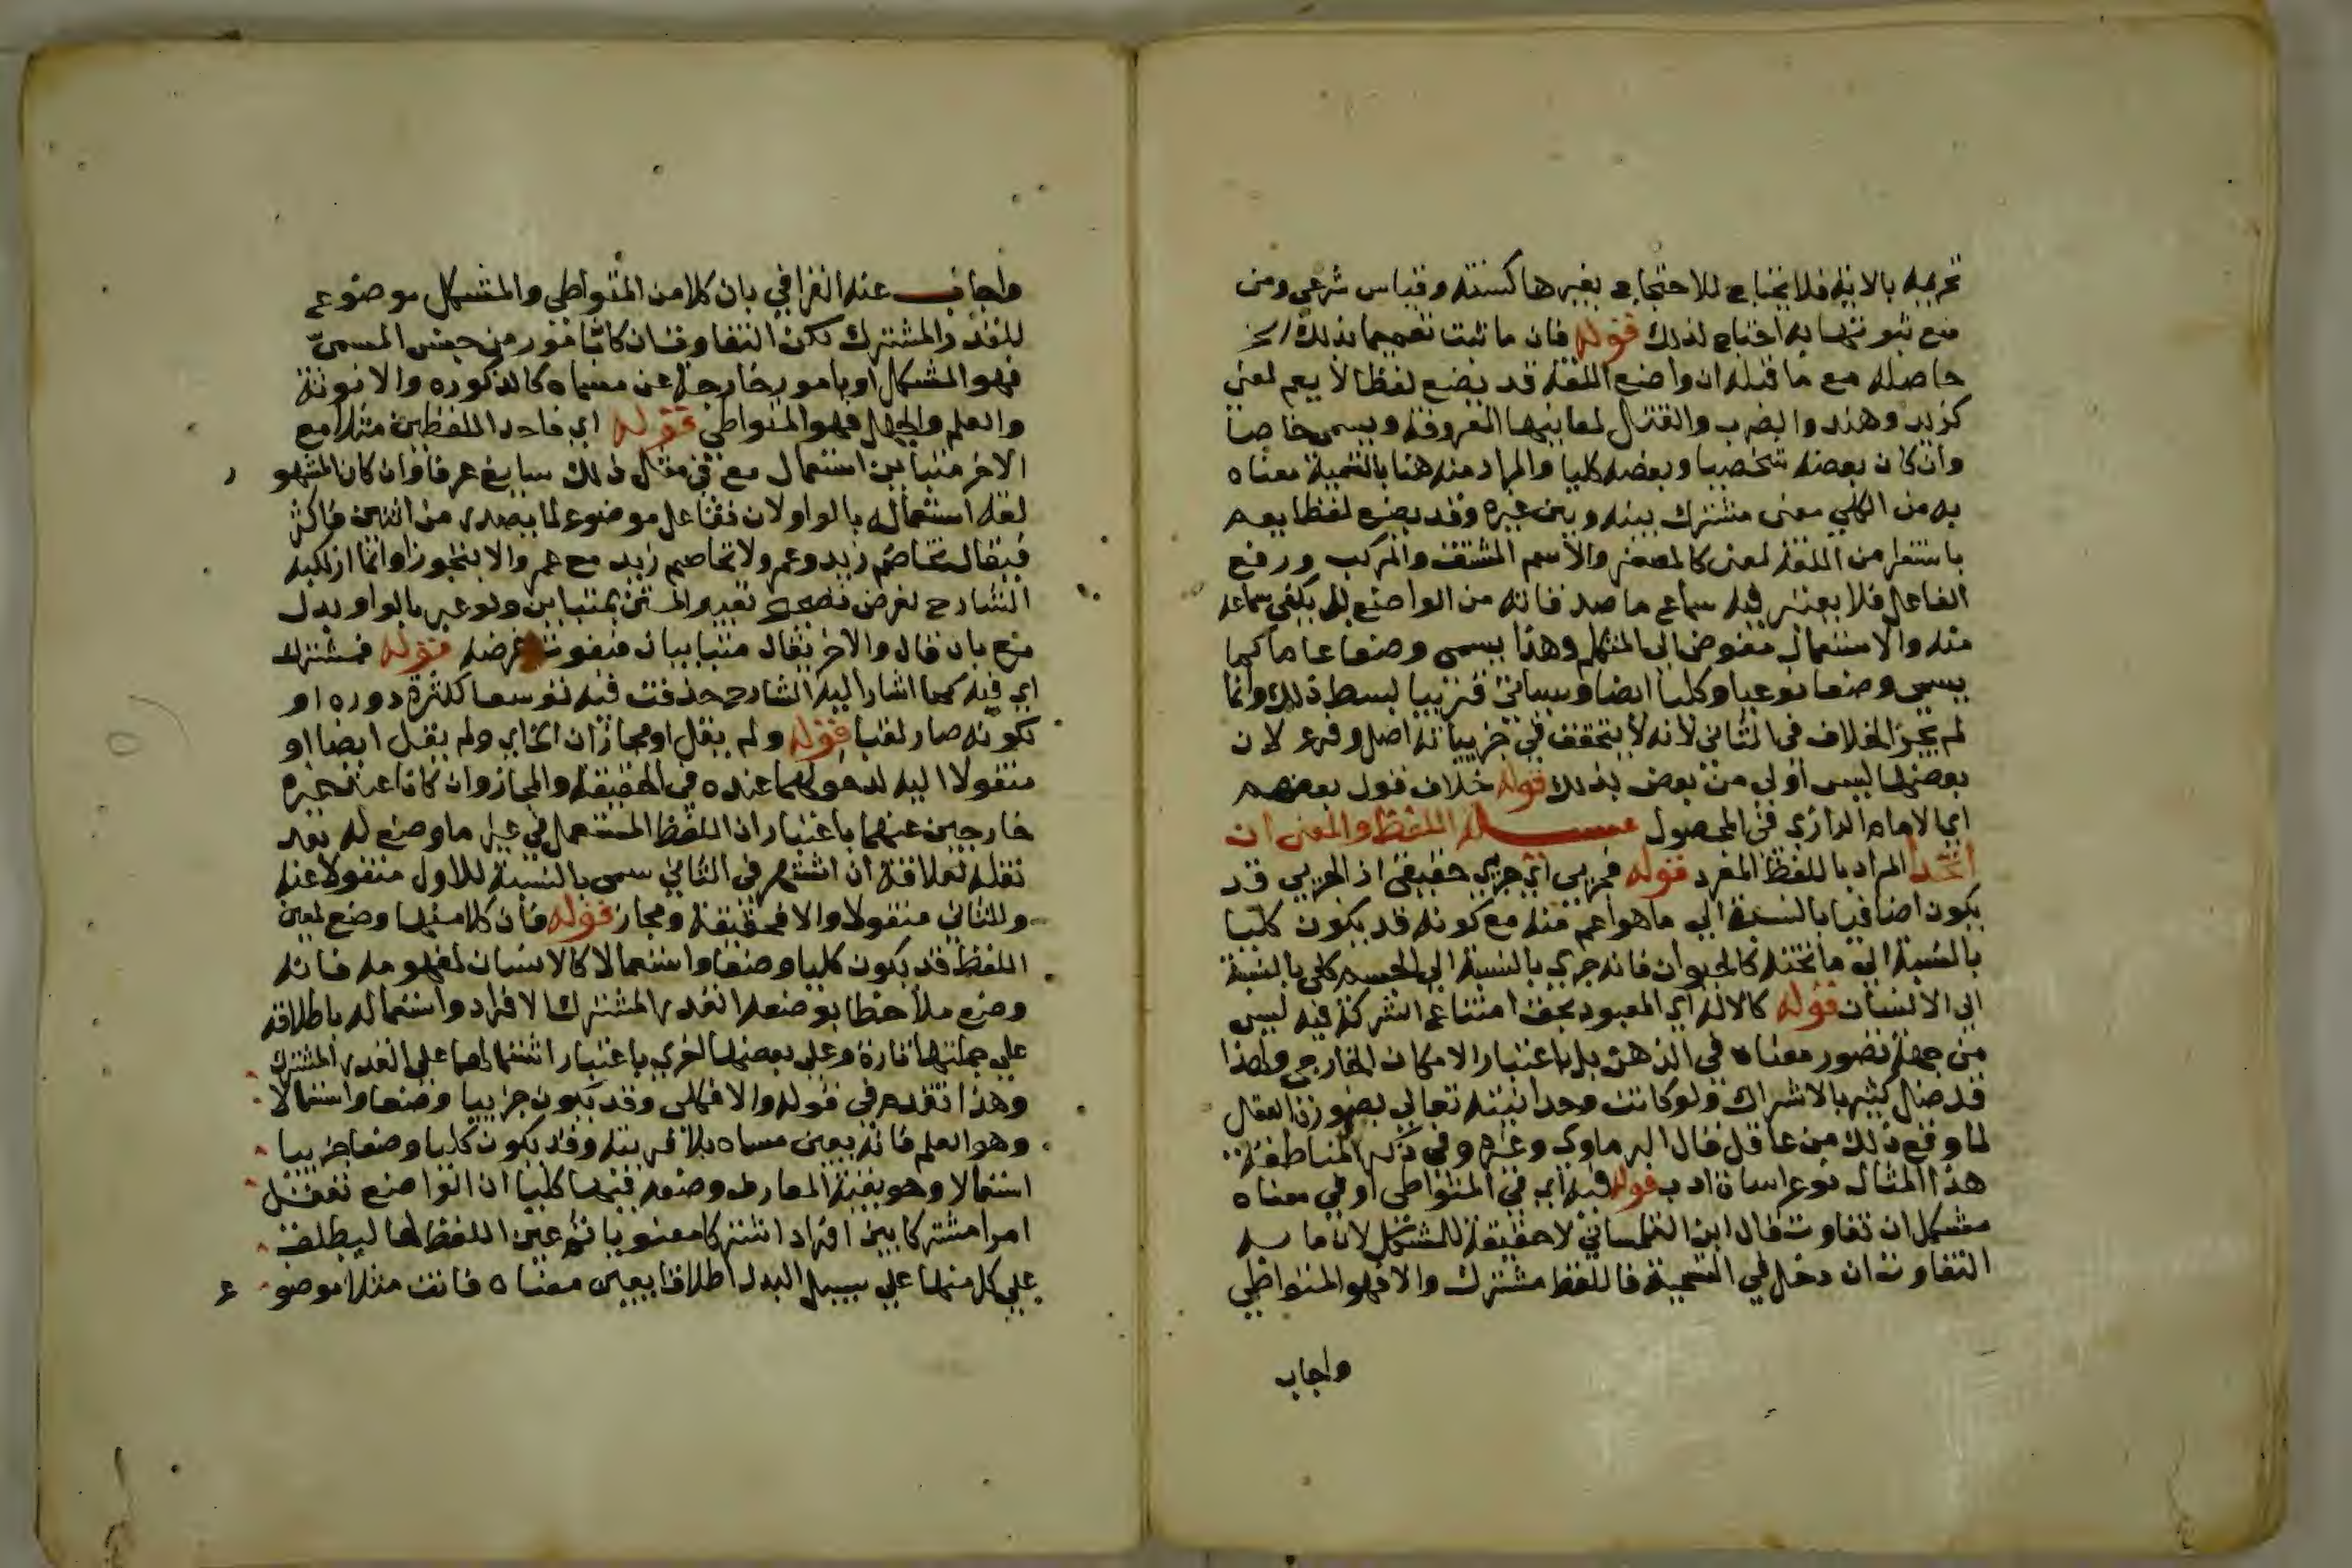 تحريمه بالاية فلا يحتاج للاحتجاج بغيرها كسنة وقياس شرعي ومن
منع ثبوتها به احتاج لذلك قوله فان ما ثبت تعميمه بذلك الخ
حاصله مع ما قبله ان واضع اللغة قد يضع لفظا لا يعم لمعنى
كزيد وهند والضرب والقتال لمعانيها المعروفة ويسمى خاصا
وان كان بعضه شخصيا وبعضه كليا والمراد منه هنا بالتسمية معناه
به من الكلي معنى مشترك بينه وبين غيره وقد يضع لفظا يعم
باستقرا من اللغة لمعنى كالمصغر والاسم المشتق والمركب ورفع
الفاعل فلا يعتبر فيه سماع ما صد فانه من الواضع بل يكفي سماعه
منه والاستعمال مفوض الى المتكلم وهذا يسمى وضعا عاما كما
يسمى وضعا نوعيا وكليا ايضا وسياتي قريبا بسط ذلك وانما
لم يجز الخلاف في الثاني لانه لا يتحقق في جزيياته اصل وفرع لان
بعضها ليس اولى من بعض بذلك قوله خلاف قول بعضهم
اي الامام الرازي في المحصول مسئلة اللفظ والمعنى ان
اتحدا المراد باللفظ المفرد قوله فجزيي اي جزيي حقيقي اذ الجزيي قد
يكون اضافيا بالنسبة الى ما هو اعم منه مع كونه قد يكون كليا
بالنسبة الى ما تحته كالحيوان فانه جزيي بالنسبة الى الجسم كلي بالنسبة
الى الانسان قوله كالاله اي المعبود بحق امتناع الشركة فيه ليس
من جهة تصور معناه في الذهن بل باعتبار الامكان الخارجي ولهذا
قد ضل كثير بالاشراك ولو كانت وحدانيته تعالى بضرورة العقل
لما وقع ذلك من عاقل قال البرماوي وغيره وفي ذكر المناطقة
هذا المثال نوع اساة ادب قوله فيه اي في المتواطي او في معناه
مشكل ان تفاوت قال ابن التلمساني لا حقيقة للمشكل لان ما به
التفاوت ان دخل في التسمية فاللفظ مشترك والا فهو المتواطي
واجاب
واجاب عنه القرافي بان كلا من المتواطي والمشكل موضوع
للقدر المشترك لكن التفاوت ان كان بامور من جنس المسمى
فهو المشكل او بامور خارجة عن مسماه كالذكوره والانوثة
والعلم والجهل فهو المتواطي قوله اي فاحد اللفظين مثلا مع
الاخر متباين استعمال مع في مثل ذلك سايغ عرفا وان كان المشهور
لغة استعماله بالواو لان تفاعل موضوع لما يصدر من اثنين فاكثر
فيقال تخاصم زيد وعمرو لا تخاصم زيد مع عمرو الا بتجوز وانما ارتكبه
الشارح لغرض تصحيح تعبير المتن بمتباين ولو عبر بالواو بدل
مع بان قال والاخر يقال متباينان فيفوت غرضه قوله فمشترك
اي فيه كما اشار اليه الشارح حذفت فيه توسعا لكثرة دوره او
لكونه صار لقبا قوله ولم يقل او مجازان الخ اي ولم يقل ايضا او
منقولا اليه لدخولهما عنده في الحقيقة والمجاز وان كانا عند غيره
خارجين عنهما باعتبار ان اللفظ المستعمل في غير ما وضع له بعد
نقله لعلاقة ان اشتهر في الثاني سمى بالنسبة للاول منقولا عنه
وللثاني منقولا والا فحقيقة ومجاز قوله فان كلا منها وضع لمعين
اللفظ قد يكون كليا وضعا واستعمالا كالانسان لمفهومه فانه
وضع ملاحظا بوضعه القدر المشترك الافراد واستعماله باطلاقه
على جملتها تارة وعلى بعضها اخرى باعتبار اشتمالها على القدر المشترك
وهذا تقدم في قوله والا فكلي وقد يكون جزييا وضعا واستعمالا
وهو العلم فانه يعين مسماه بلا قرينة وقد يكون كليا وضعا جزييا
استعمالا وهو بقية المعارف وضعه فيها كليا ان الواضع تعقل
امرا مشتركا بين افراد اشتركا معنويا ثم عين اللفظ لها ليطلق
على كل منها على سبيل البدل اطلاقا يعين معناه فانت مثلا موضوع